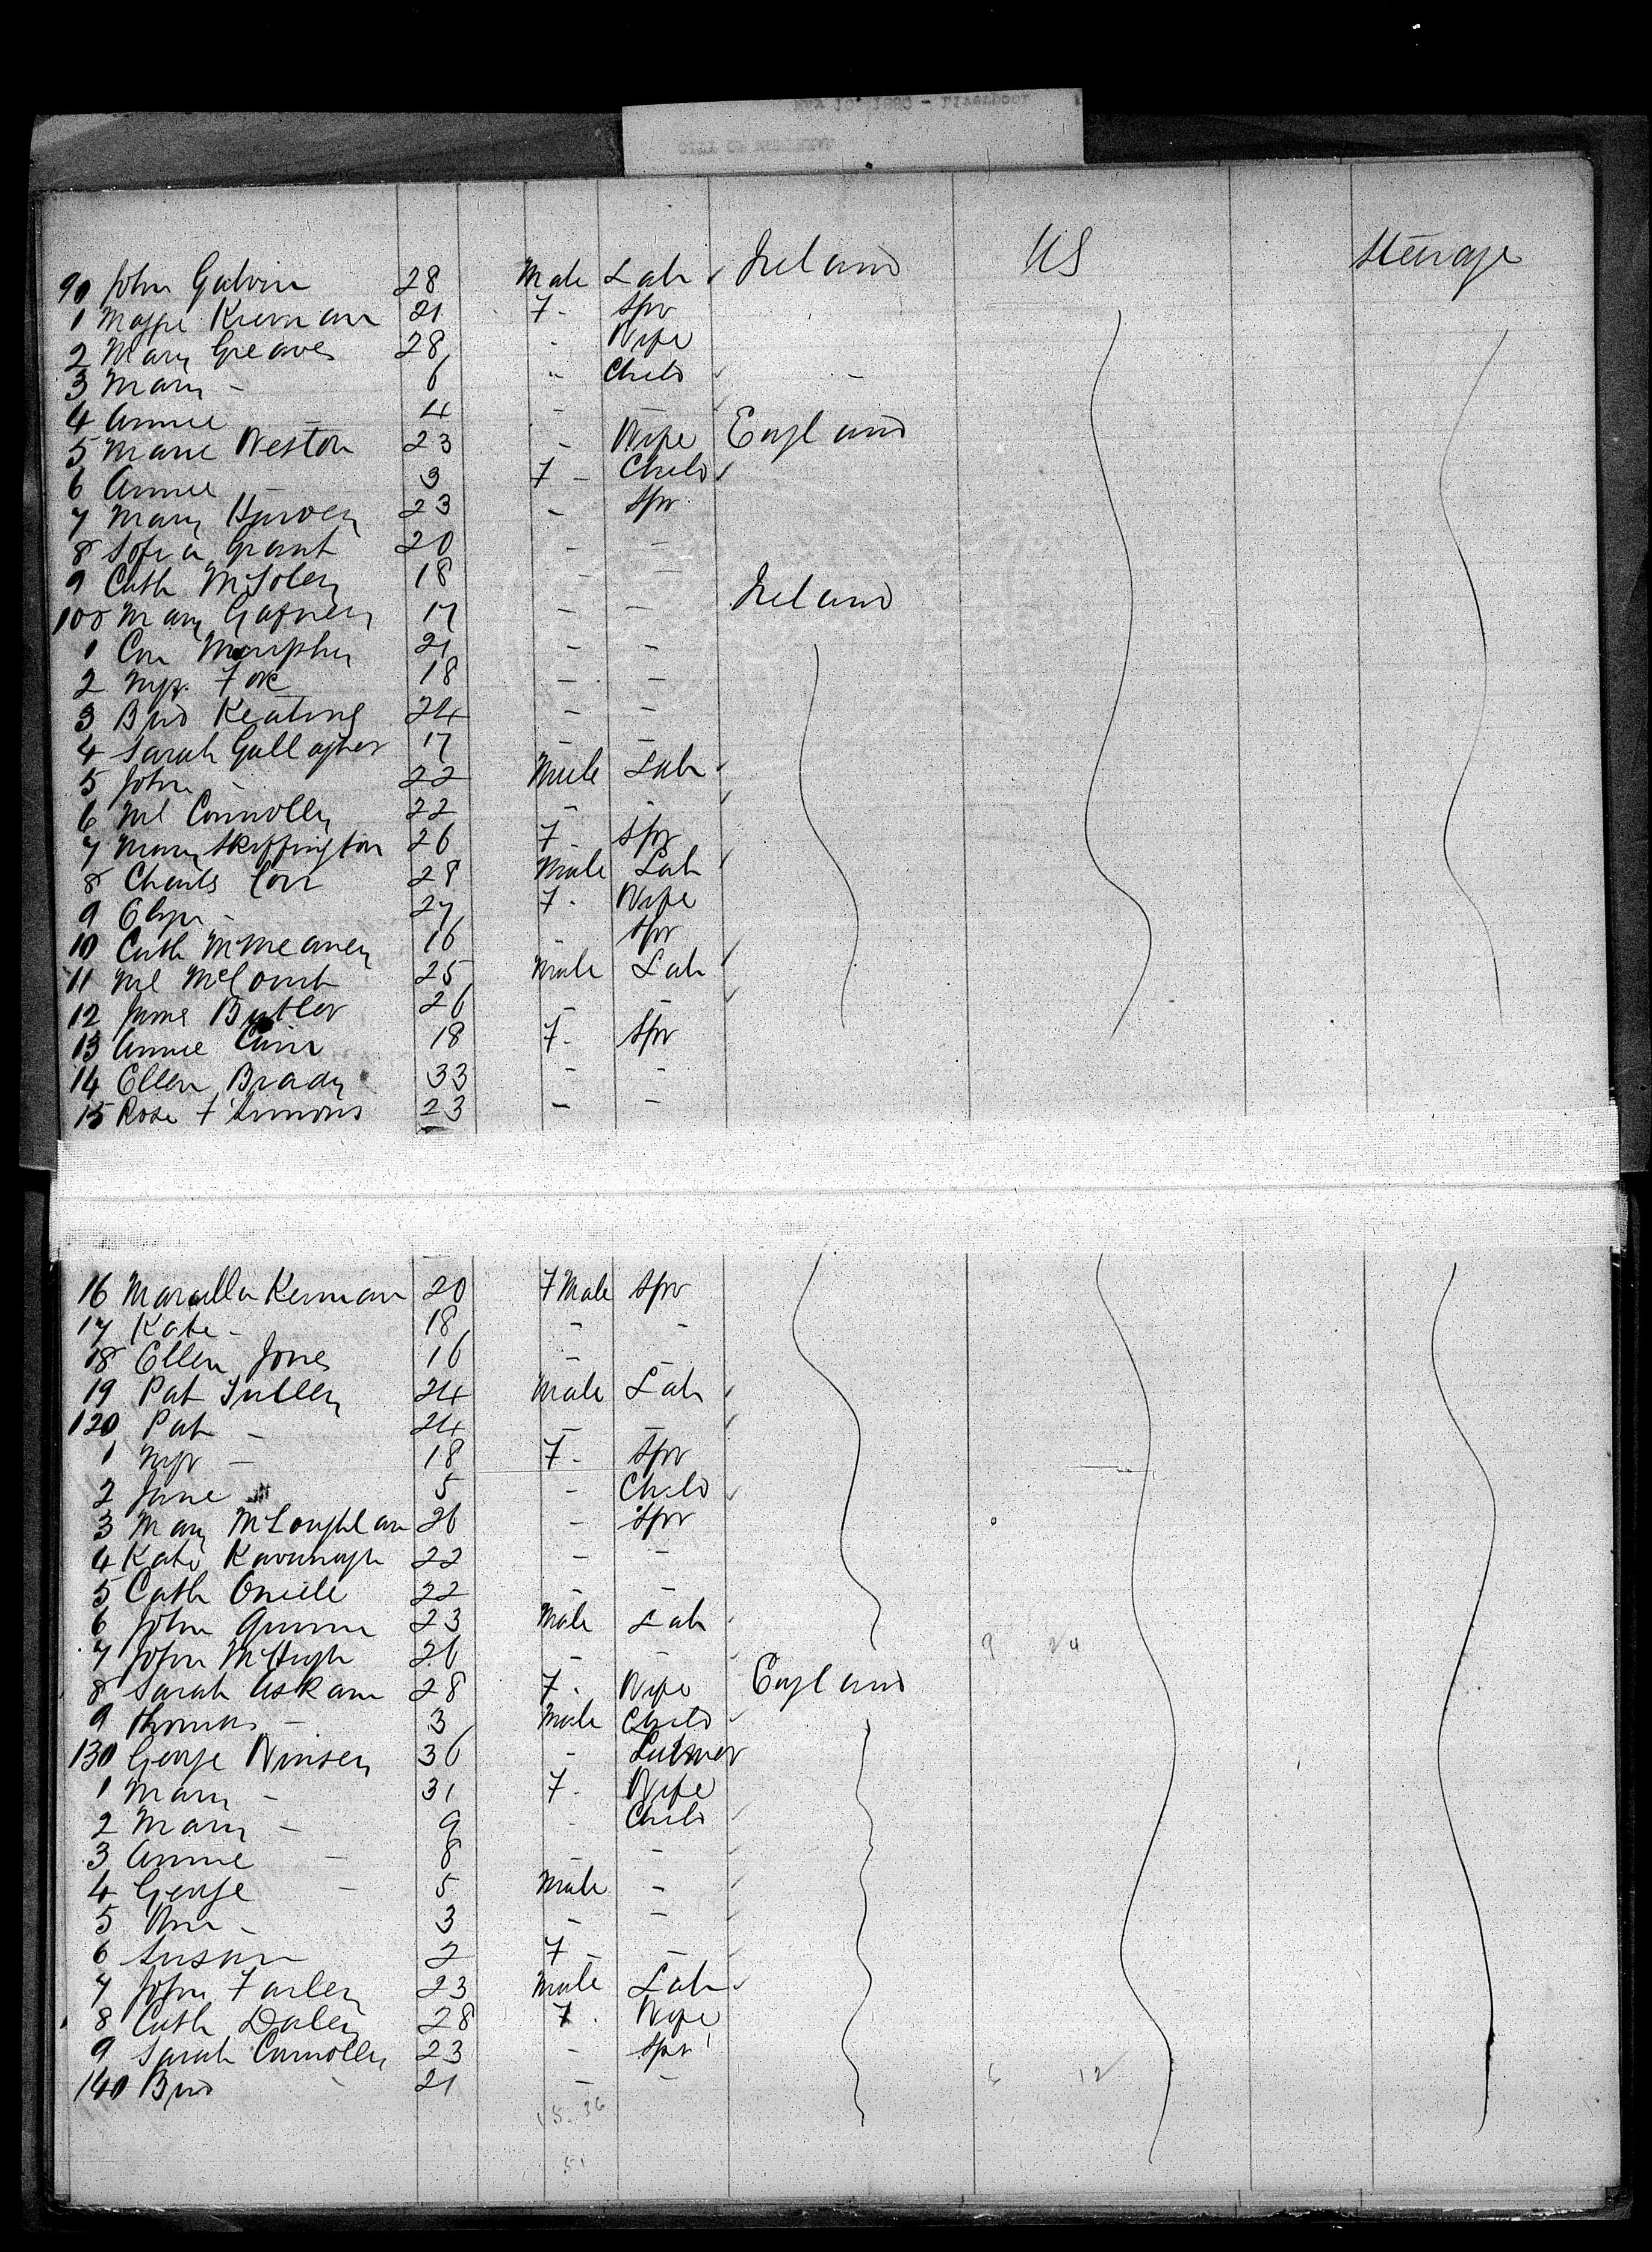 90 John Galvin 28 Male Lab Ireland US Steerage
1 Maggie Kiernan 21 F - Spr
2 Mary Greaves 28 - Wife
3 Mary - 6 " Child -
4 Annie - 4 - -
5 Marie Weston 23 - Wife England
6 Annie - 3 F - Child
7 Mary Harvey 23 - Spr
8 Sofia Grant 20 - -
9 Cath 18 - -
100 Mary Gafney 17 - - Ireland
1 Con Murphy 21 - -
2 Mgt. Fox 18 - -
3 Brid Keating 24 - -
4 Sarah Gallagher 17 - -
5 John - 22 Male Lab
6 Ml Connolly 22 - -
7 Mary Skeffington 26 F Spr
8 Charles Corr 28 Male Lab
9 - 27 F - Wife
10 Cath 16 - Spr
11 Ml McCourt 25 Male Lab
12 James Butler 26 - -
13 Annie 18 F - Spr
14 Ellen Brady 33 - -
15 Rose 23 - -
16 Marcella Kernan 20 F Male Spr
17 Kate - 18 - -
18 Ellen Jones 16 - -
19 Pat Tulley 24 Male Lab
120 Pat - 24 - -
1 Mgt - 18 F - Spr
2 Jane 5 - Child
3 Mary McLoughlan 26 - Spr
4 Kate Kavanagh 22 - -
5 Cath Oneill 22 - -
6 John Gunn 23 Male Lab
7 John McHugh 26 - - 9 24
8 Sarah Askam 28 F. Wife England
9 Thomas - 3 Male Child
130 George 36 -
1 Mary - 31 F - Wife
2 Mary - 9 - Child
3 Annie - 8 - -
4 George - 5 Male -
5 Wm - 3 - -
6 Susan 2 F - -
7 John Farley 23 Male Lab
8 Cath Daley 28 F. Wife
9 Sarah Connolly 23 - Spr
140 Brid - 21 - - 6 12
15. 36
51